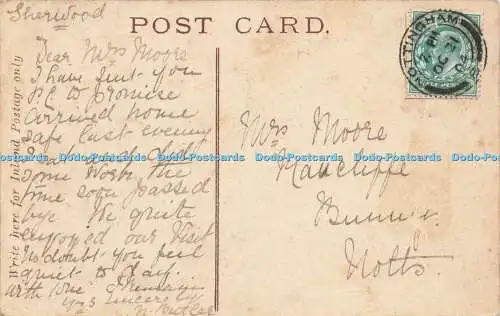 Sherwood
POST CARD.
Dear Mrs Moore
I have sent you
P.C to promise
arrived home
safe last evening
and did
some work. The
time soon passed
bye We quite
enjoyed our Visit
No doubt you feel
quiet to day.
with love
yrs sincerely
Write here for Inland Postage only
NOTTINGHAM
OC 21
04
Mrs Moore
Radcliffe
Notts.
Dodo-Postcards Dodo-Postcards Dodo-Postcards Dodo-Postcards Dodo-Postcards Dodo-Postcards